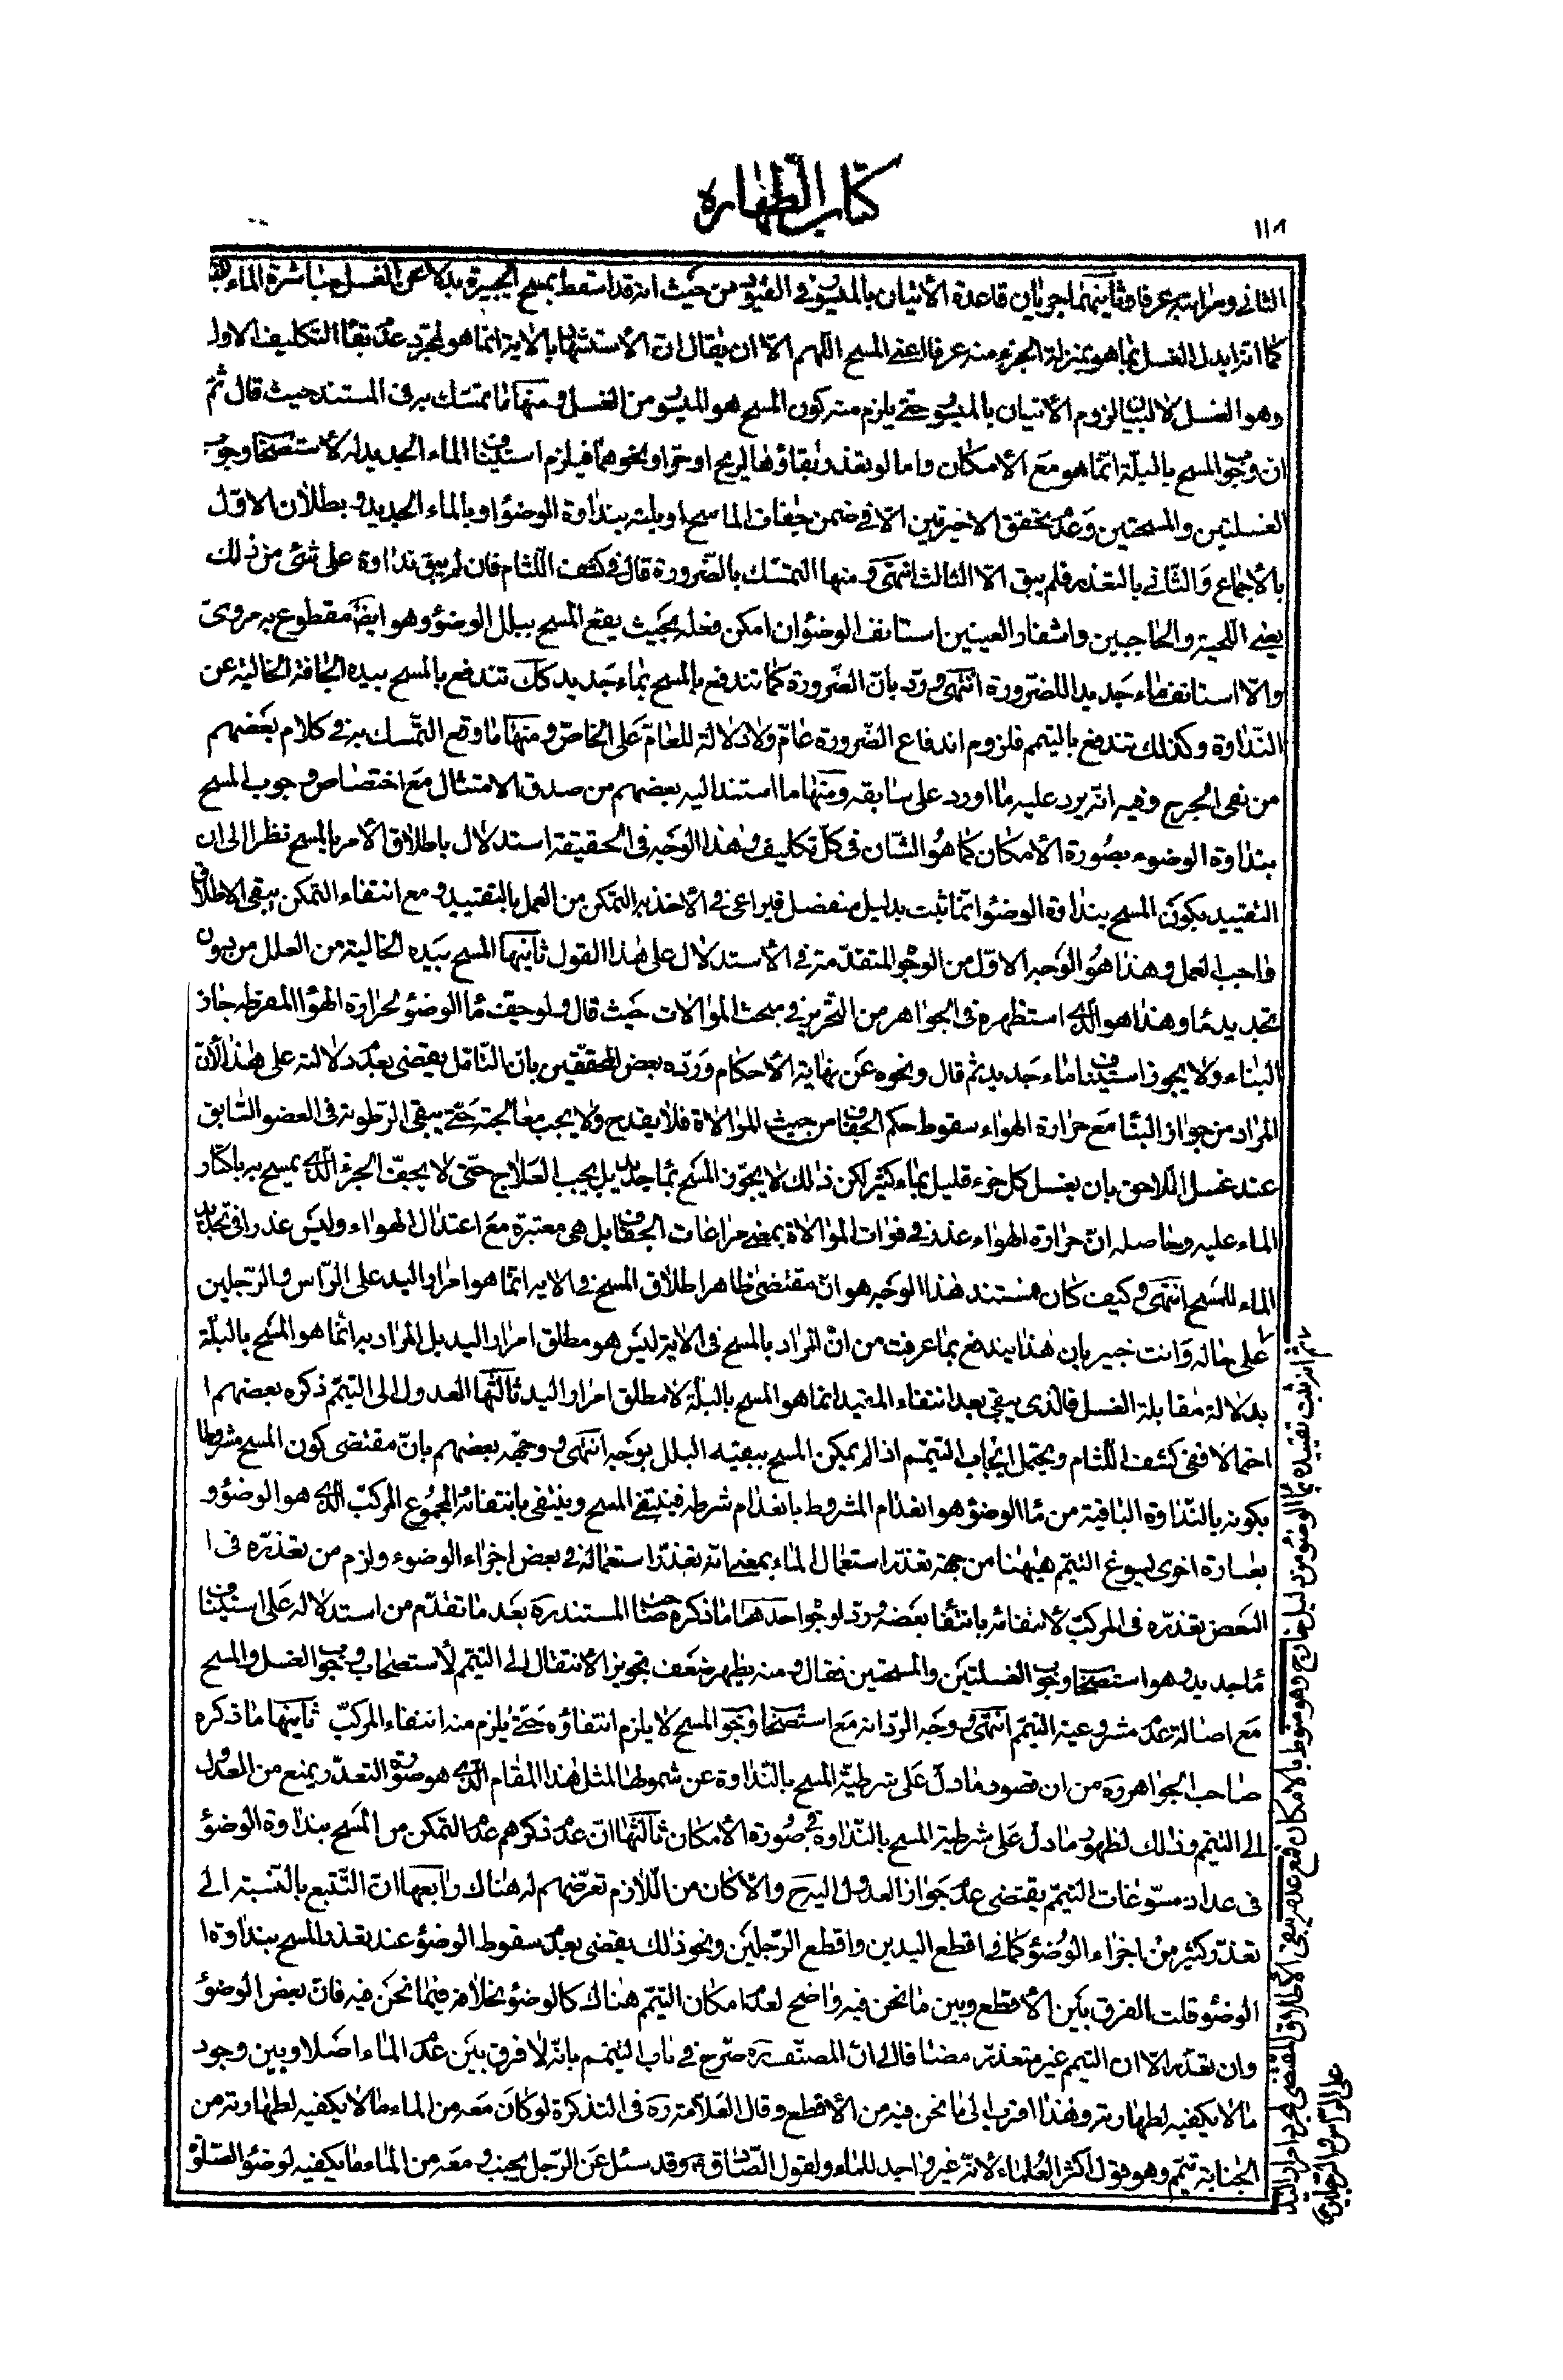 كتاب الطهارة
١١٨
الثاني ومرابته عرفا وثانيهما جريان قاعدة الأتيان بالميسور في القيود من حيث انه قد اسقط بمسح الجبيرة بدلا عن الغسل مباشرة الماء للبشرة
كما انه ابدل الغسل بما هو بمنزلة الجزء منه عرفا اعني المسح اللهم الّا ان يقال انّ الأستشهاد بالاية انما هو لمجرّد عدم بقاء التكليف الاول
وهو الغسل لا لبيان لزوم الأتيان بالميسور حتى يلزم منه كون المسح هو الميسور من الغسل ومنها ما تمسّك به في المستند حيث قال ثم
ان وجوب المسح بالبلّة انّما هو مع الأمكان واما لو تعذر بقاؤها لريح او حرّ او نحوهما فيلزم استيناف الماء الجديد له لأستصحاب وجوب
الغسلتين والمسحتين وعدم تحقق الاخيرتين الّا في ضمن جفاف الماسح او بلته بنداوة الوضوء او بالماء الجديد و بطلان الاوّل
بالأجماع والثاني بالتعذر فلم يبق الّا الثالث انتهى و منها التمسّك بالضّرورة قال في كشف اللّثام فان لم يبق نداوة على شئ من ذلك
يعني اللحية والحاجبين واشفار العينين استانف الوضوء ان امكن فعله بحيث يقع المسح ببلل الوضوء وهو ايضا مقطوع به مروىّ
والّا استانف ماء جديدا للضّرورة انتهى ورد بانّ الضّرورة كما تندفع بالمسح بماء جديد كك تندفع بالمسح بيده الجافة الخالية عن
النّداوة وكذلك تندفع بالتيمم فلزوم اندفاع الضّرورة عامّ ولا دلالة للعامّ على الخاصّ ومنها ما وقع التمسّك به في كلام بعضهم
من نفى الحرج وفيه انّه يرد عليه ما اورد على سابقه ومنها ما استند اليه بعضهم من صدق الامتثال مع اختصاص وجوب المسح
بنداوة الوضوء بصورة الأمكان كما هو الشّان في كلّ تكليف وهذا الوجه في الحقيقة استدلال باطلاق الأمر بالمسح نظرا الى ان
التقييد بكون المسح بنداوة الوضوء انّما ثبت بدليل منفصل فيراعى في الأخذ به التمكن من العمل بالتقييد و مع انتفاء التمكن يبقى الاطلاق
واجب العمل وهذا هو الوجه الاوّل من الوجوه المتقدّمة في الأستدلال على هذا القول ثانيها المسح بيده الخالية من البلل من دون
تجديد ماء وهذا هو الّذي استظهره في الجواهر من التحرير في مبحث الموالات حيث قال و لو جفّف ماء الوضوء لحرارة الهواء المفرطة جاز
البناء ولا يجوز استيناف ماء جديد ثم قال ونحوه عن نهاية الأحكام وردّه بعض المحققين بانّ التّامّل يقضى بعدم دلالته على هذا لأنّ
المراد من جواز البناء مع حرارة الهواء سقوط حكم الجفاف من حيث الموالاة فلا يقدح ولا يجب معالجته حتّى يبقى الرطوبة في العضو السّابق
عند غسل اللّاحق بان يغسل كل جزء قليل بماء كثير لكن ذلك لا يجوّز المسح بماء جديد بل يجب العلاج حتّى لا يجفّ الجزء الّذي يمسح به باكثار
الماء عليه وحاصله انّ حرارة الهواء عذر في فوات الموالاة بمعنى مراعات الجفاف بل هي معتبرة مع اعتدال الهواء وليس عذرا في تجديد
الماء للمسح انتهى و كيف كان فمستند هذا الوجه هو انّ مقتضى ظاهر اطلاق المسح في الاية انّما هو امرار اليد على الرّاس و الرّجلين
على حاله وانت خبير بان هذا يندفع بما عرفت من انّ المراد بالمسح في الاية ليس هو مطلق امرار اليد بل المراد به انّما هو المسح بالبلّة
بدلالة مقابلة الغسل فالذي يبقى بعد انتفاء المقيد انما هو المسح بالبلّة لا مطلق امرار اليد ثالثها العدول الى التيمّم ذكره بعضهم ا
احتمالا ففي كشف اللّثام ويحتمل ايجاب التيمّم اذا لم يمكن المسح ببقيّة البلل بوجه انتهى و وجّهه بعضهم بانّ مقتضى كون المسح مشروطا
بكونه بالنّداوة الباقية من ماء الوضوء هو انعدام المشروط بانعدام شرطه فينتفي المسح وينتفى بانتفائه المجموع المركّب الّذي هو الوضوء و
بعبارة اخرى يسوغ التيمّم هيهنا من جهة تعذّر استعمال الماء بمعنى انه تعذّر استعماله في بعض اجزاء الوضوء ولزم من تعذّره في ا
البعض تعذّره في المركّب لأنتفائه بانتفاء بعضه و ردّ لوجوه احدها ما ذكره صاحب المستند ره بعد ما تقدّم من استدلاله على استيناف
ماء جديد و هو استصحاب وجوب الغسلتين والمسحتين فقال و منه يظهر ضعف تجويز الأنتقال الى التيمّم لأستصحاب وجوب الغسل والمسح
مع اصالة عدم مشروعية التيمّم انتهى و وجه الردّ انه مع استصحاب وجوب المسح لا يلزم انتفاؤه حتى يلزم منه انتفاء المركّب ثانيها ما ذكره
صاحب الجواهر ره من ان قصور ما دلّ على شرطيّة المسح بالنّداوة عن شمولها لمثل هذا المقام الّذي هو صورة التعذّر يمنع من العدول
الى التيمّم وذلك لظهور ما دلّ على شرطية المسح بالنّداوة في صورة الأمكان ثالثها انّ عدم ذكرهم عدم التمكن من المسح بنداوة الوضوء
في عداد مسوّغات التيمّم يقتضى عدم جواز العدول اليه ح والّا كان من اللّازم تعرّضهم له هناك رابعها انّ التّتبع بالنّسبة الى
تعذّر كثير من اجزاء الوضوء كما في اقطع اليدين واقطع الرّجلين ونحو ذلك يقضى بعدم سقوط الوضوء عند تعذر المسح بنداوة ا
الوضوء قلت الفرق بين الأقطع وبين ما نحن فيه واضح لعدم امكان التيمّم هناك كالوضوء بخلافه فيما نحن فيه فانّ بعض الوضوء
وان تعذّر الّا ان التيمم غير متعذّر مضافا الى انّ المصنّف ره صرّح في باب التيمّم بانّه لا فرق بين عدم الماء اصلا وبين وجود
ما لا يكفيه لطهارته وهذا اقرب الى ما نحن فيه من الأقطع وقال العلّامة ره في التذكرة لو كان معه من الماء ما لا يكفيه لطهارته من
الجنابة تيمّم وهو قول اكثر العلماء لانّه غير واجد للماء ولقول الصّادق ع وقد سئل عن الرّجل يجنب و معه من الماء ما يكفيه لوضوء الصّلوة
انّه ثبت تقييده بماء الوضوء من دليل خارج وهو منوط بالامكان فمع عدمه يبقى الأطلاق المقتضى لمجرد امرار اليد
على الرّاس و الرّجلين